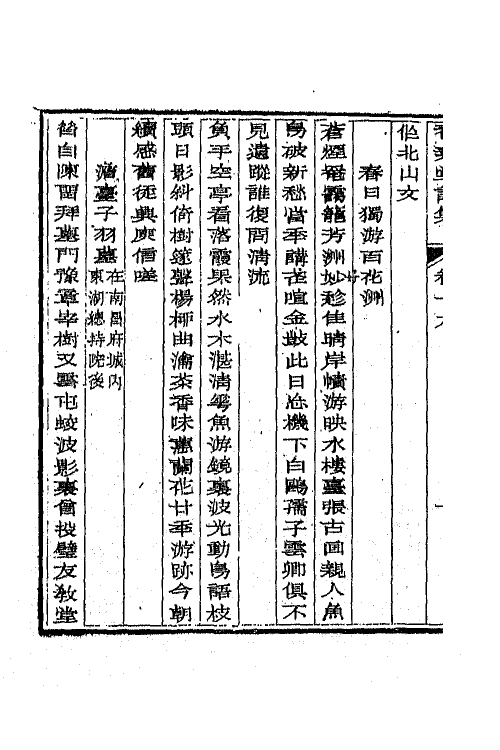 詩集 卷十六
佗北山文
春日獨游百花洲
蒼煙卷靄籠芳洲妙趁佳晴岸幘游映水樓臺張古画親人魚
鳥破新愁當年講武喧金鼓此日忘機下白鷗孺子雲卿俱不
見遺蹤誰復問清流
負手空亭看落霞果然水木湛清華魚游鏡裏波光動鳥語枝
頭日影斜倚樹篴聲楊柳曲瀹茶香味蕙蘭花廿年游跡今朝
續感舊徒興庾信嗟
澹臺子羽墓 在南昌府城內
東湖總持院後
昔自陳留拜墓門豫章宰樹又雲屯蛟波影裏曾投璧友敎堂